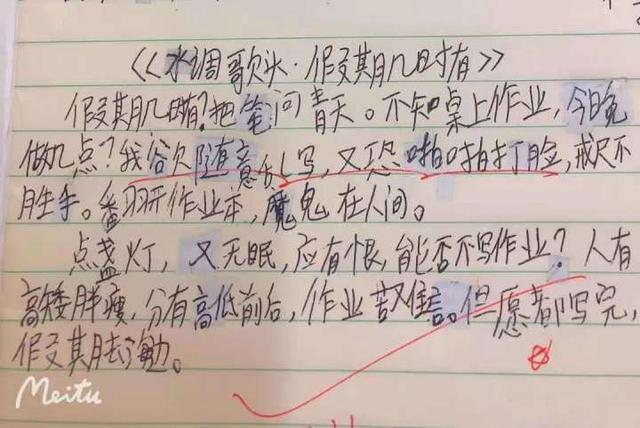 《水调歌头·假期几时有》
假期几时有?把笔问青天。不知桌上作业,今日晚
做几点?我欲随意乱写,又恐啪啪打脸,戒尺不
胜手。番羽开作业本,魔鬼在人间。
点盏灯,又无眠,应有恨,能否不写作业?人有
高矮胖瘦,分有高低前后,作业苦又
但愿都写完,
假期去
Meitu